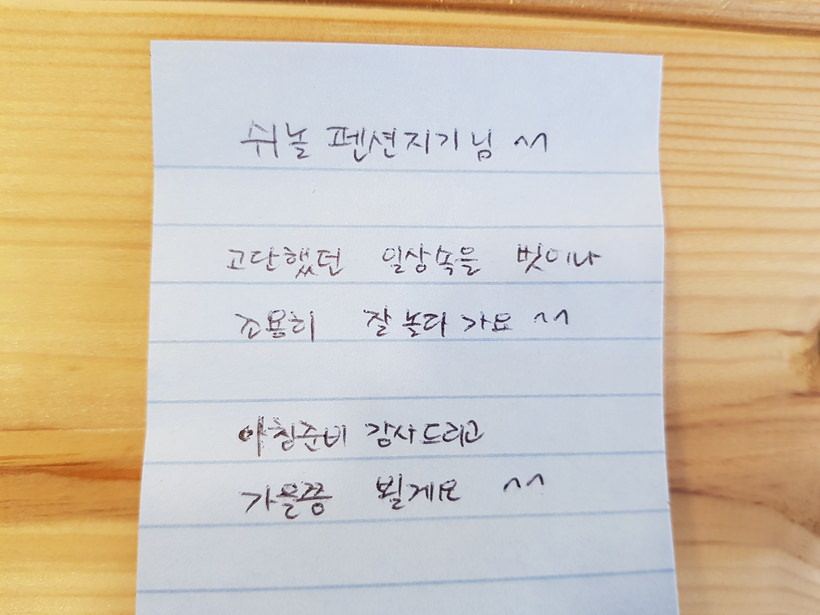 쉬놀 펜션지기님 ^^
고단했던 일상속을 벗어나
조용히 잘 놀다 가요 ^^
아침준비 감사드리고
가을쯤 뵐게요 ^^